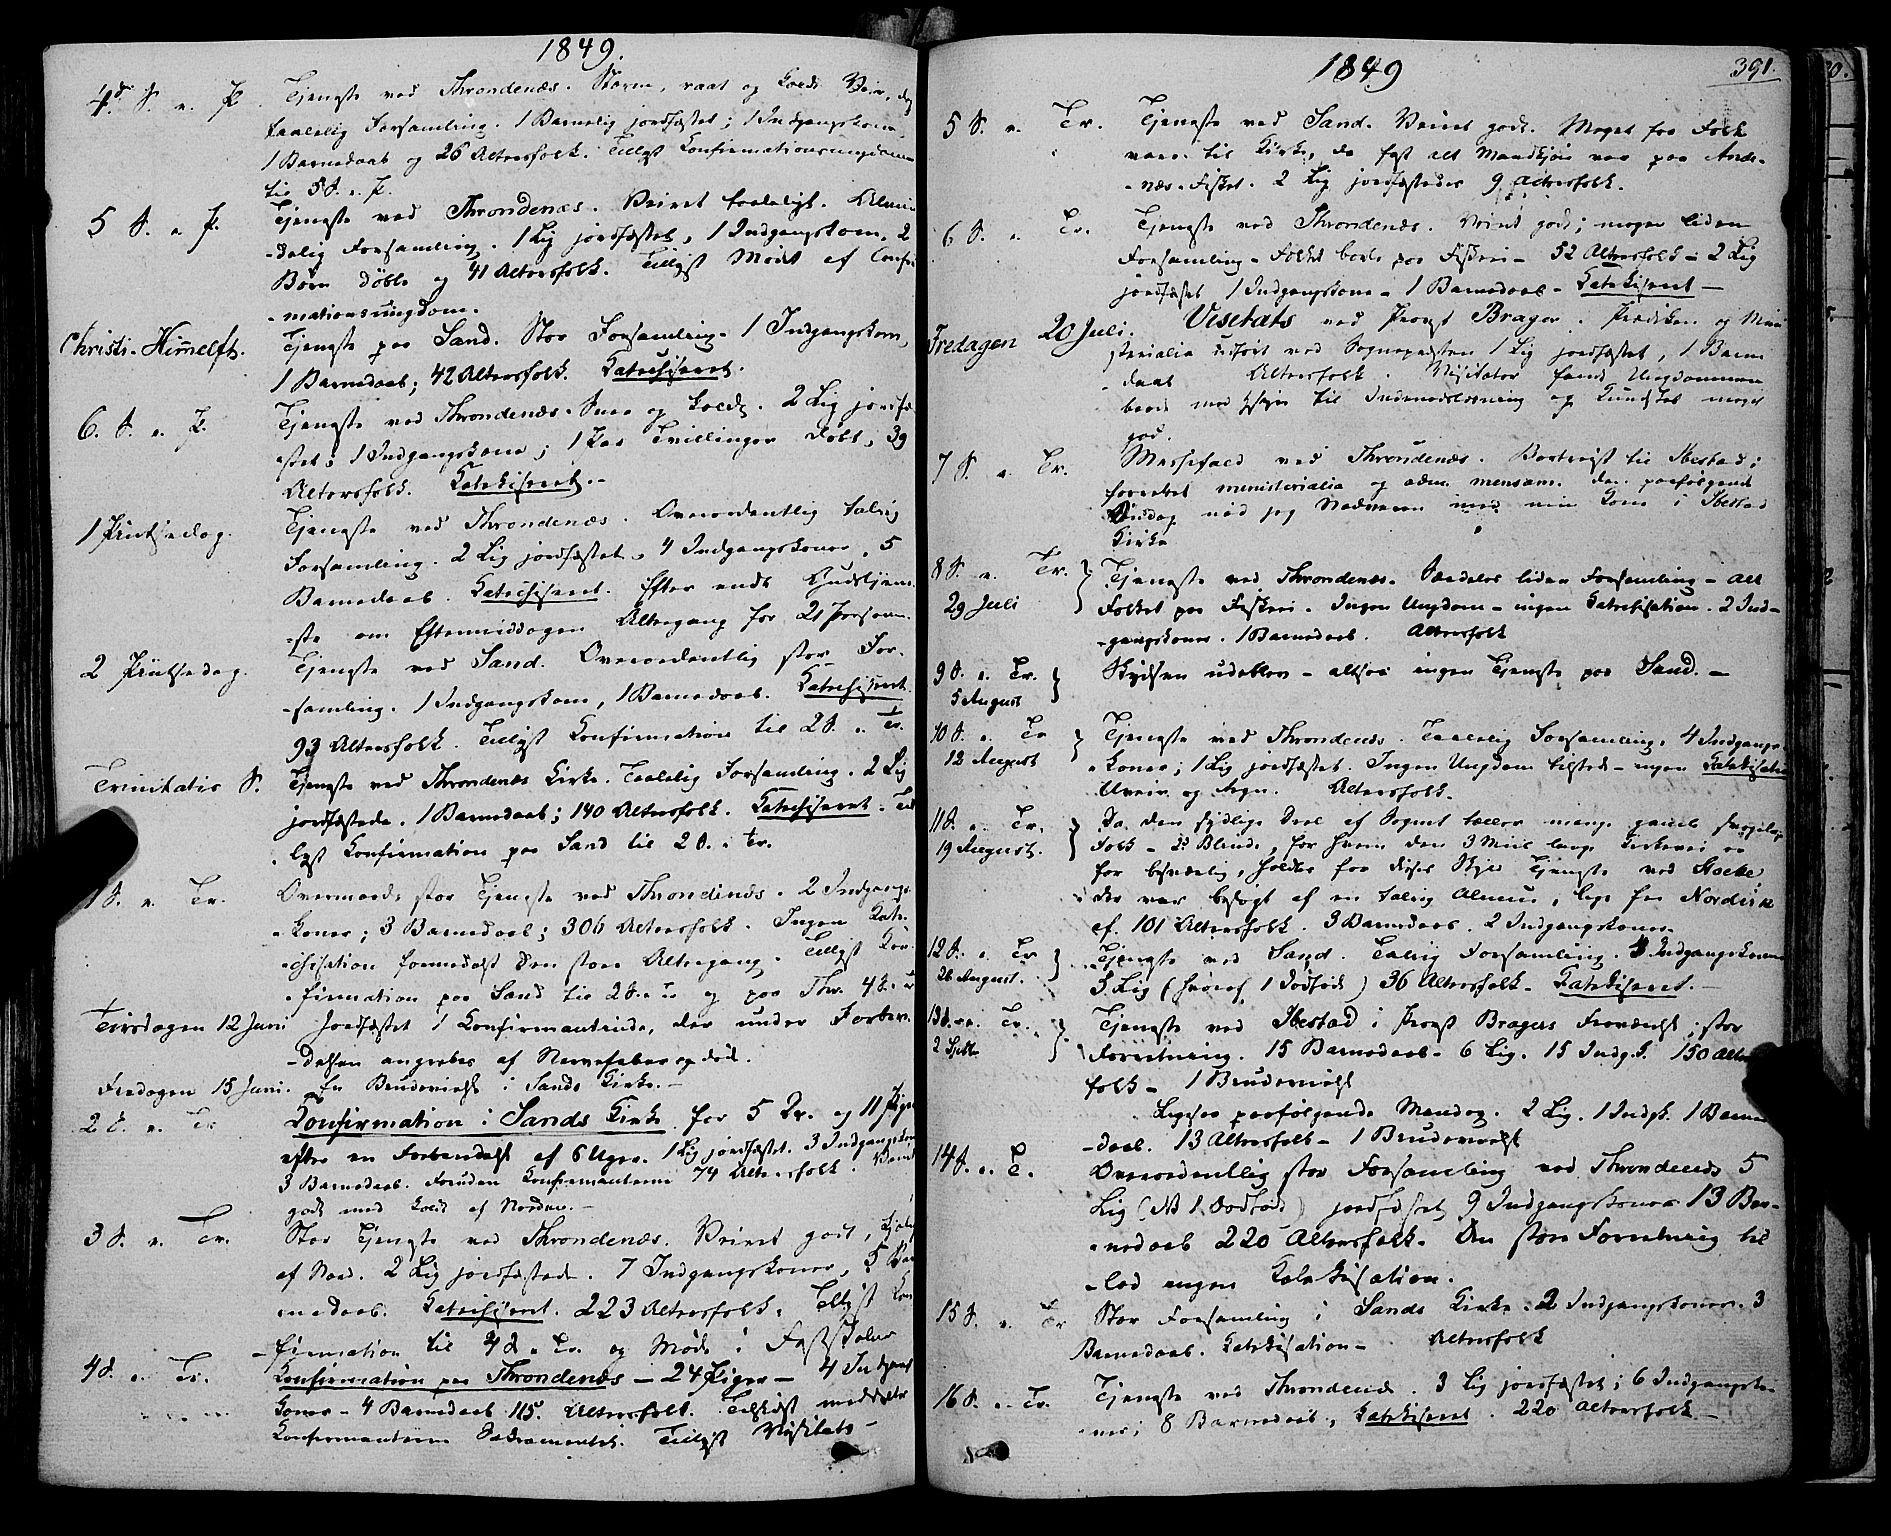 1849.
4de S. e. P. Tjeneste ved Throndenæs. Storm, raat og koldt Veir, dog
taalelig Forsamling. 1 Barnelig jordfæstet; 1 Indgangskone,
1 Barnedaab og 26 Altersfolk. Tillyst Konfirmationsungdommen
til 5 S. e. P.
5 S. e. P. Tjeneste ved Throndenæs. Veiret taaleligt. Almin-
-delig Forsamling. 1 Lig jordfæstet, 1 Indgangskone, 2
Børn døbte og 41 Altersfolk. Tillyst Mødet af Confir-
-mationsungdom.
Christi-Himelft. Tjeneste paa Sand. Stor Forsamling. 1 Indgangskone,
1 Barnedaab; 42 Altersfolk. Katechiseret.
6. S. e. P. Tjeneste ved Throndenæs. Snee og Kulde. 2 Lig jordfæ-
-stet; 1 Indgangskone; 1 Par Tvillinger døbt, 39
Altersfolk. Katekiseret.-
1 Pintsedag. Tjeneste ved Throndenæs. Overordentlig talrig
Forsamling. 2 Lig jordfæstet. 4 Indgangskoner, 5
Barnedaab. Katechiseret. Efter endt Gudstjene-
-ste om Eftermiddagen Altergang for 21 Personer.
2 Pintsedag. Tjeneste ved Sand. Overordentlig stor For-
-samling. 1 Indgangskone, 1 Barnedaab. Katechiseret.
93 Altersfolk. Tillyst Konfirmation til 2 S. e. Tr.
Trinitatis S. Tjeneste ved Throndenæs Kirke. Taalelig Forsamling. 2 Lig
jordfæstede. 1 Barnedaab; 140 Altersfolk. Katechiseret. Til-
lyst Konfirmation paa Sand til 2 S. e. Tr.
1 S. e. Tr. Overmaade stor Tjeneste ved Throndenæs. 2 Indgangs-
-koner; 3 Barnedaab; 306 Altersfolk. Ingen Kate-
-chisation formedelst den store Altergang. Tillyst Kon-
-firmation paa Sand til 2 S. e. Tr og paa Thr. 4 S. e. Tr
Tirsdagen 12 Juni Jordfæstet 1 Konfirmantinde, der under Forbere-
-delsen angrebes af Nervefeber og døde.
Fredagen 15 Juni. En Brudevielse i Sands Kirke.-
2 S. e. Tr Konfirmation i Sands Kirke for 5 Dr. og 11 Piger
efter en Forberedelse af 6 Uger. 1 Lig jordfæstet. 3 Indgangskoner
3 Barnedaab. Foruden Konfirmanterne 74 Altersfolk. Veiret
godt med Kulde af Norden.-
3 S. e. Tr. Stor Tjeneste ved Throndenæs. Veiret godt,
af Nord. 2 Lig jordfæstede. 7 Indgangskoner, 5 Bar-
nedaab. Katechiseret. 223 Altersfolk. Tillyst Kon-
-firmation til 4 S. e. Tr. og Møde i Fastskoler
4 S. e. Tr. Konfirmation paa Throndenæs - 24 Piger - 4 Indgangs-
koner - 4 Barnedaab 115. Altersfolk.
Konfirmanterne Sacramentet. Tillyst Visitats -
1849
391.
5 S. e. Tr. Tjeneste ved Sand. Veiret godt. Meget faa Folk
vare til Kirke, da fast alt Mandkjøn var paa Ande-
-næs-Fisket. 2 Lig jordfæstedes 9 Altersfolk.
6 S. e. Tr. Tjeneste ved Throndenæs. Veiret godt; meget liden
Forsamling - Folket borte paa Fiskeri - 52 Altersfolk - 2 Lig
jordfæstet 1 Indgangskone - 1 Barnedaab - Katekiseret -
Fredagen 20 Juli. Visetats ved Provst Brager. Prædiken og Mini-
sterialia udført ved Sognepresten 1 Lig jordfæstet, 1 Barne-
daab Altersfolk. Visitator fandt Ungdommen
baade med Hensyn til Indenadslæsning og Kundskab meget
god.
7 S. e. Tr. Messefald ved Throndenæs. Bortreist til Ibestad;
forrettet ministerialia og adm. mensam. Den paafølgende
Onsdag nød jeg Nadveren med min Kone i Ibestad
Kirke
8 S. e. Tr. 29 Juli Tjeneste ved Throndenæs. Særdeles liden Forsamling - alt
Folket paa Fiskeri. Ingen Ungdom - ingen Katechisation. 2 Ind-
-gangskoner. 1 Barnedaab. Altersfolk
9 S. e. Tr. 5 August Skydsen udeblev - altsaa ingen Tjeneste paa Sand. -
10 S. e. Tr 12 August Tjeneste ved Throndenæs. Taalelig Forsamling. 4 Indgangs-
-koner; 1 Lig jordfæstet. Ingen Ungdom tilstede - ingen Katekisation
Uveir og Regn. Altersfolk.
11 S. e. Tr. 19 August. Da den sydlige Deel af Sognet tæller mange gamle skrøbelige
Folk - ja Blinde, for hvem den 3 Miil lange Kirkevei er
for besværlig, holdtes for disses Skyld Tjeneste ved Stokke,
der var besøgt af en talrig Almue,
af 101 Altersfolk. 3 Barnedaab. 2 Indgangskoner
12 S. e. Tr 26 August. Tjeneste ved Sand. Talrig Forsamling. 3 Indgangskoner
3 Lig (hvoraf 1 Dødfødt) 36 Altersfolk - Katekiseret. -
13 S. e. Tr. 2 Septbr. Tjeneste ved Ibestad i Provst Bragers Fraværelse; stor
Forretning. 15 Barnedaab - 6 Lig. 15 Indg.K. 150 Alters-
folk - 1 Brudevielse
Ligesaa paafølgende Mandag. 2 Lig. 1 Indgk. 1 Barne-
-daab. 13 Altersfolk - 1 Brudevielse
14 S. e. T. Overordentlig stor Forsamling ved Throndenæs 5
Lig (NB 1 Dødfødt) jordfæstet 9 Indgangskoner 13 Bar-
-nedaab 220 Altersfolk. Den store Forretning til
-lod ingen Katekisation.
15 S. e. Tr Stor Forsamling i Sands Kirke. 2 Indgangskoner. 3
Barnedaab. Katekisation - Altersfolk
16 S. e. Tr. Tjeneste ved Throndenæs. 3 Lig jordfæstet; 6 Indgangsko-
ner; 8 Barnedaab, Katekiseret. 220 Altersfolk. -